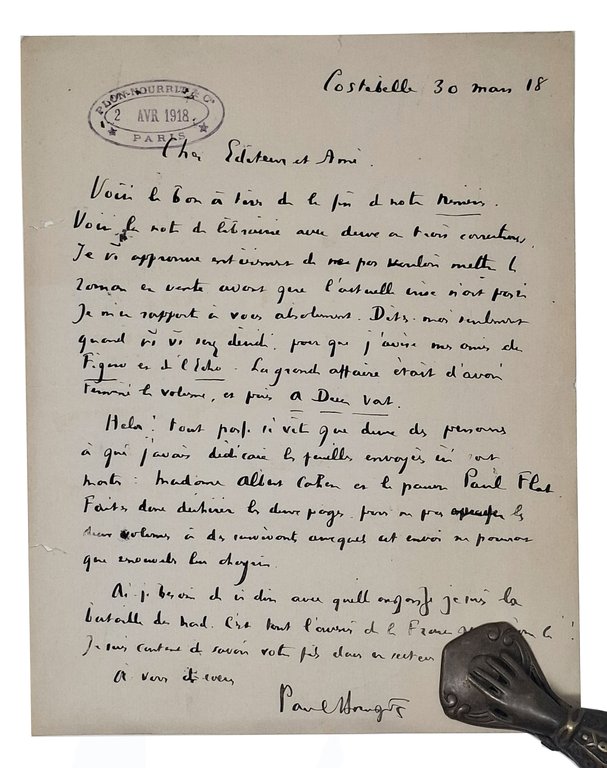 Costebelle 30 mars 18
PLON-NOURRIT & Cie
2 AVR 1918
PARIS
Cher Editeur et Ami,
Voici le bon à tirer de la fin de notre Nemesis.
Voici la note de librairie avec deux ou trois corrections.
Je vs approuve entièrement de ne pas vouloir mettre le
roman en vente avant que l'actuelle crise n'ait passé
Je m'en rapporte à vous absolument. Dites-moi seulement
quand vs vs serez décidé, pour que j'avise mes amis du
Figaro et de l'Echo. La grande affaire était d'avoir
terminé le volume, et puis A Dieu Vat.
Helas! tout passe si vite que deux des personnes
à qui j'avais dédicacé les feuilles envoyées sont
mortes : madame Albert Cahen et le pauvre Paul Flat
Faites donc déchirer les deux pages, pour ne pas les
deux volumes à des survivants auxquels cet envoi ne pourrait
que renouveler leur chagrin.
Ai-je besoin de vs dire avec quelle angoisse je suis la
bataille du nord. C'est tout l'avenir de la France
Je suis content de savoir votre fils dans un secteur
à vous de coeur
Paul Bourget